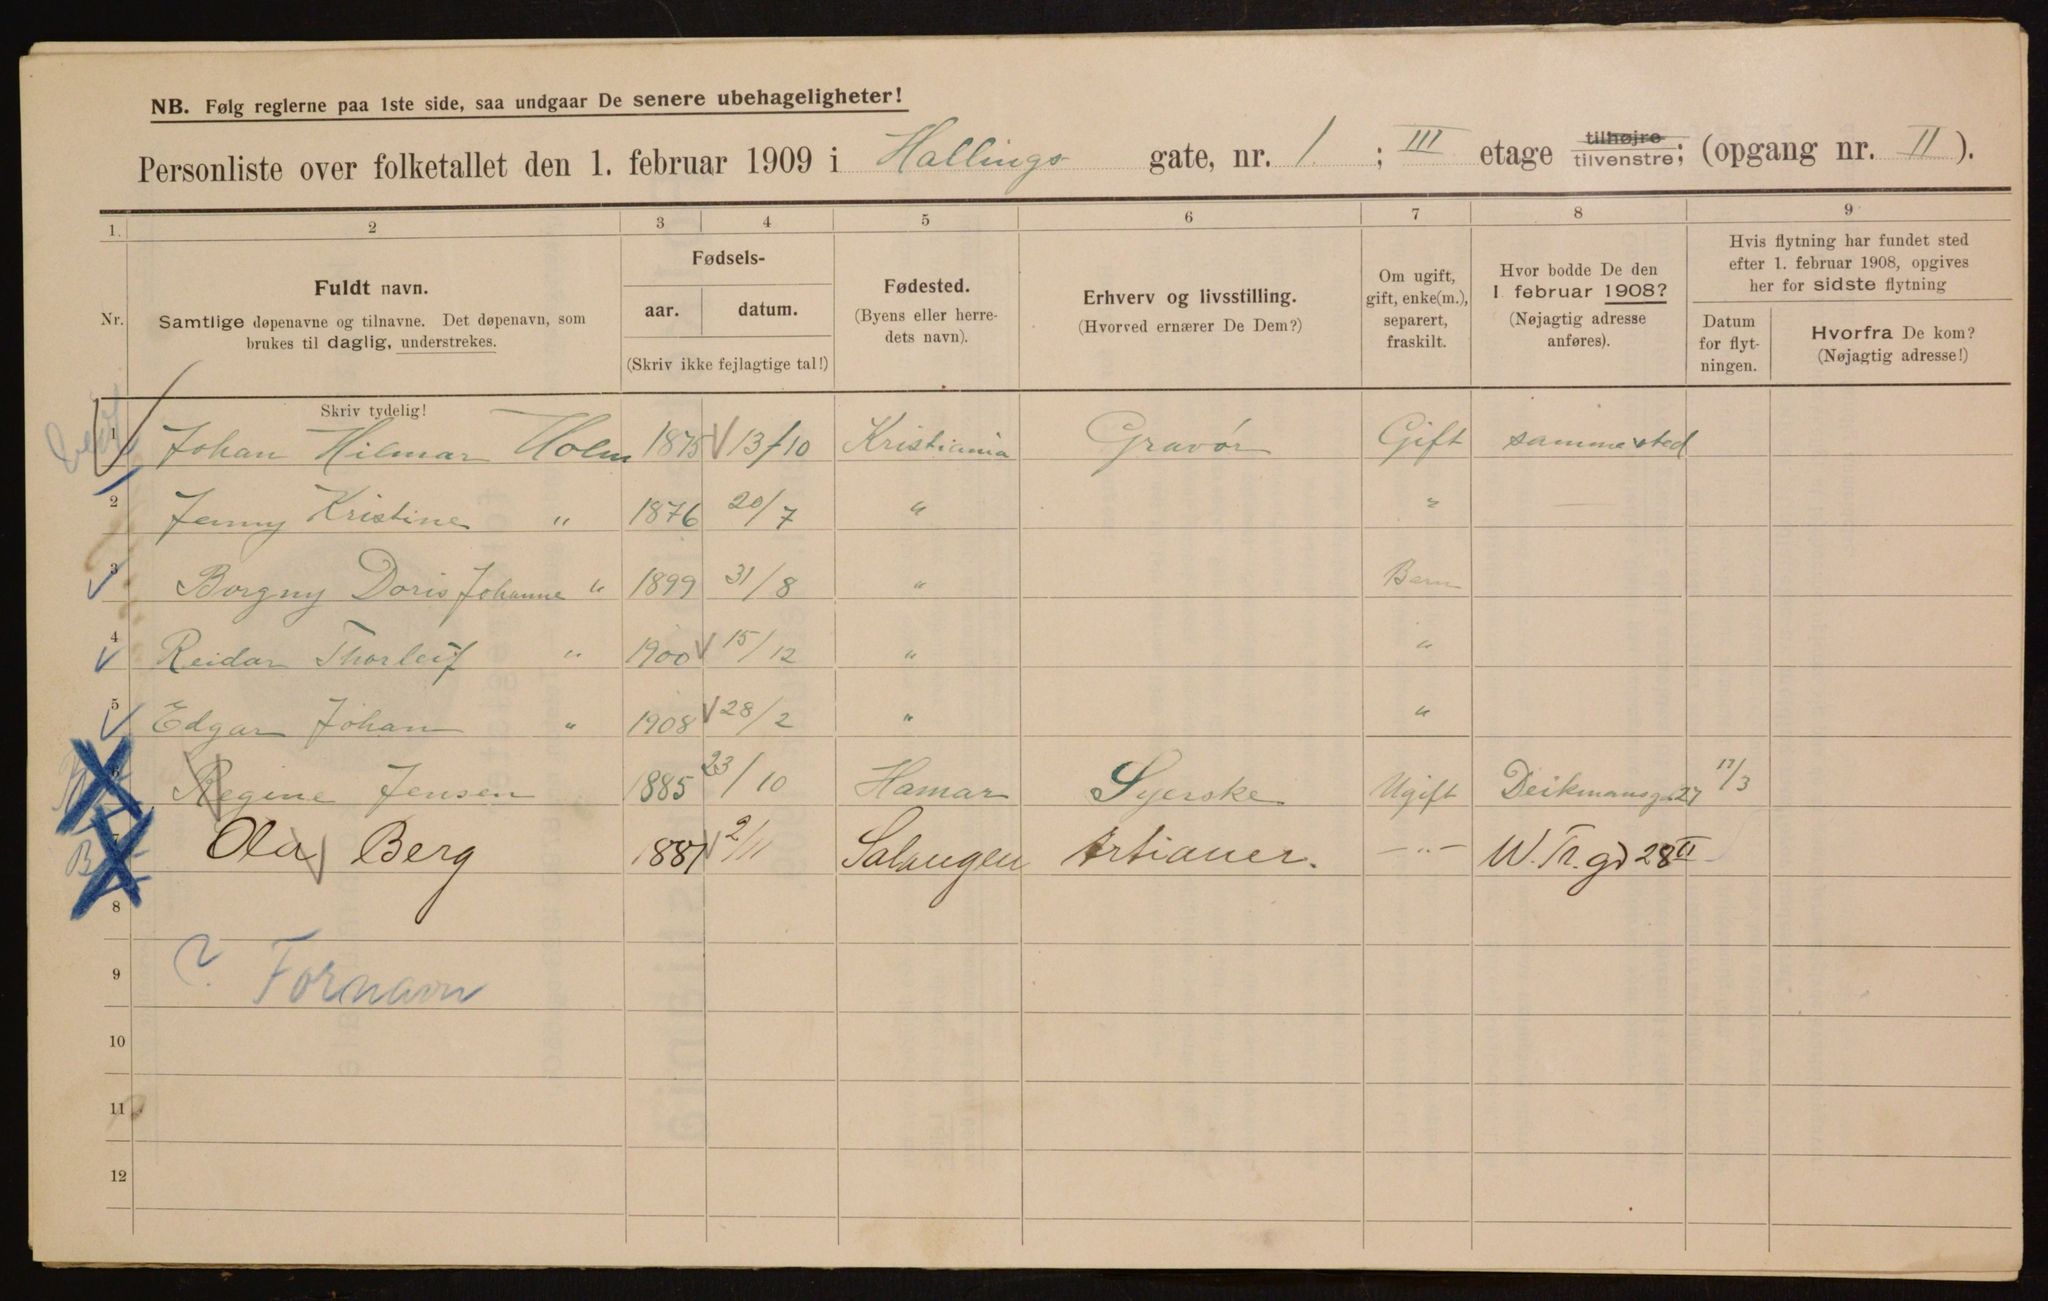 NB. Følg reglerne paa 1ste side, saa undgaar De senere ubehageligheter!
Personliste over folketallet den 1. februar 1909 i Hallings gate, nr. 1 ; III etage tilhøjre tilvenstre; (opgang nr. II).
1. 2 3 4 5 6 7 8 9
Nr.
Fuldt navn.
Samtlige døpenavne og tilnavne. Det døpenavn, som
brukes til daglig, understrekes.
Fødsels-
aar. datum.
(Skriv ikke fejlagtige tal!)
Fødested.
(Byens eller herre-
dets navn).
Erhverv og livsstilling.
(Hvorved ernærer De Dem?)
Om ugift,
gift, enke(m.),
separert,
fraskilt.
Hvor bodde De den
1 februar 1908?
(Nøjagtig adresse
anføres).
Hvis flytning har fundet sted
efter 1. februar 1908, opgives
her for sidste flytning
Datum
for flyt-
ningen.
Hvorfra De kom?
(Nøjagtig adresse!)
Skriv tydelig!
1 Johan Hilmar Holm 1875 13/10 Kristiania Gravør Gift samme sted
2 Jenny Kristine " 1876 20/7 " " —
3 Borgny Doris Johanne " 1899 31/8 " Barn
4 Reidar Thorleif " 1900 15/12 " "
5 Edgar Johan " 1908 28/2 " "
6 Regine Jensen 1885 23/10 Hamar Syerske Ugift Deikmansg. 27 17/3
7 Ola Berg 1887 2/11 Salangen Artianer. —"— W. Tr. gd 28 II
8
9 ? Fornavn
10
11
12